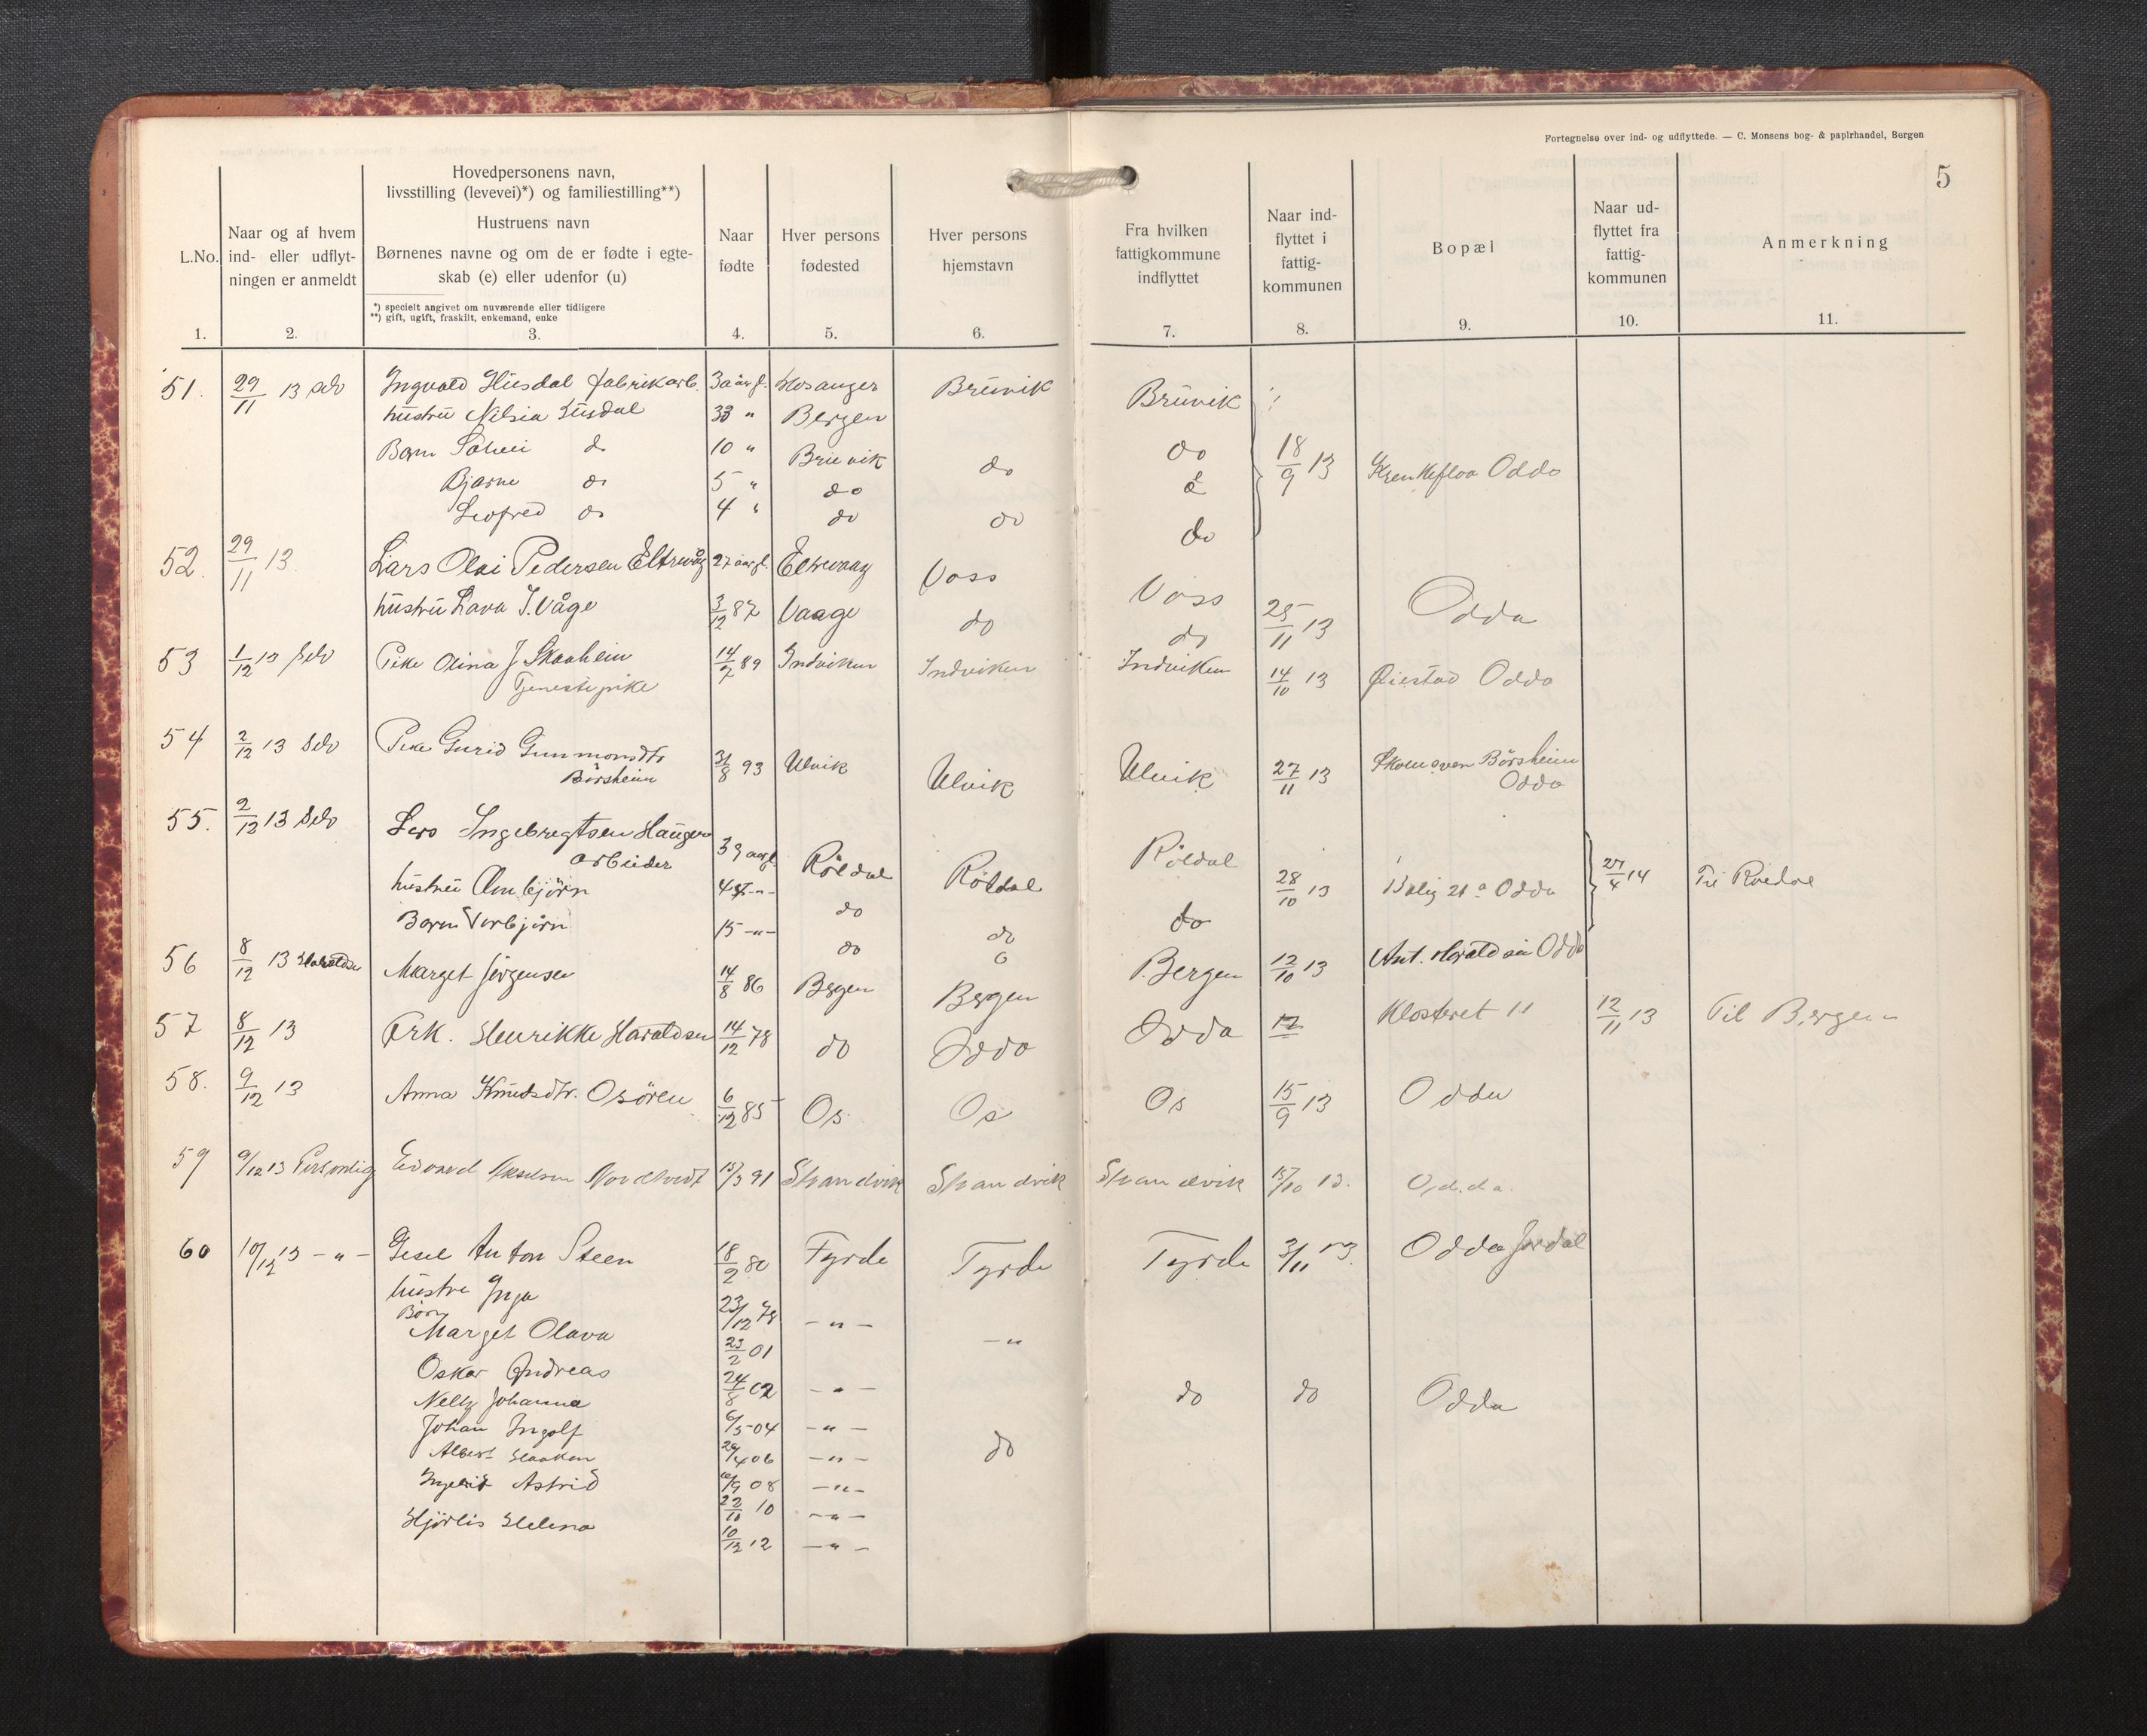 Fortegnelse over ind- og udflyttede. — C. Monsens bog- & papirhandel, Bergen
5
L.No.
1.
Naar og af hvem
ind- eller udflyt-
ningen er anmeldt
2.
Hovedpersonens navn,
livsstilling (levevei)*) og familiestilling**)
Hustruens navn
Børnenes navne og om de er fødte i egte-
skab (e) eller udenfor (u)
*) specielt angivet om nuværende eller tidligere
**) gift, ugift, fraskilt, enkemand, enke
3.
Naar
fødte
4.
Hver persons
fødested
5.
Hver persons
hjemstavn
6.
Fra hvilken
fattigkommune
indflyttet
7.
Naar ind-
flyttet i
fattig-
kommunen
8.
Bopæl
9.
Naar ud-
flyttet fra
fattig-
kommunen
10.
Anmerkning
11.
51. 29/11 13 selv Ingvald Husdal fabrikarb. Hosanger Brüvik Brüvik
hustru Nilsia Husdal 33 " Bergen
Barn do 10 " Bruvik do do 18/9 13 Odda
Bjarne do 5 " do do
Leofred do 4 " do do do
52. 29/11 13 Lars Olai Pedersen Eltrevåg 27 aar gl. Eltrevaag Voss Voss 25/11 13 Odda
hustru Lava J. Våge 3/12 87 Vaage do do
53 1/12 13 selv Pike Olina J Skaahein 14/2 89 Indviken Indviken Indviken 14/10 13 Øiestad Odda
Tjenestepike
54 2/12 13 Selv Pike Gurid Gunmonsdtr 31/8 93 Ulvik Ulvik Ulvik 27/11 13 Börsheim
Börsheim Odda
55. 2/12 13 Selv Lars Ingebregtsen Hauger 39 aar gl. Röldal Röldal Röldal 28/10 13 Bolig 21a Odda 27/4 14 Til Roedal
arbeider
hustru Ambjörn do do do
Barn Torbjörn 15 -"- do do
56 8/12 13 Haraldsen Marget Jörgensen 14/8 86 Bergen Bergen Bergen 12/10 13 Ant. Haraldsen Odda
57 8/12 13 Frk. Henrikke Haraldsen 14/12 78 do Odda Odda 12 Klosteret 11 12/11 13 Til Bergen
58. 9/12 13 Anna Knudsdtr. Osören 6/12 85 Os Os Os 15/9 13 Odda
59 9/12 13 Personlig Edvard Akselsen Nordtvedt 15/3 91 Strandvik Strandvik Strandvik 15/10 13. Odda
60 10/12 13 - " - Gesel Anton Steen 18/2 80 Fyrde Fyrde Fyrde 3/11 13. Odda Jordal
hustru Inga 23/12 78 - " - - "
Börn
Marget Olava 23/2 01
Oskar Andreas 24/8 02 - " - do do Odda
Nelly Johanna 6/5 04 - " -
Johan Ingolf 29/4 06 - " - do
Albert Haakon 08 - " -
Ingebrit Astrid 22/10 10 - " -
Hjördis Helena 10/12 12 - " -